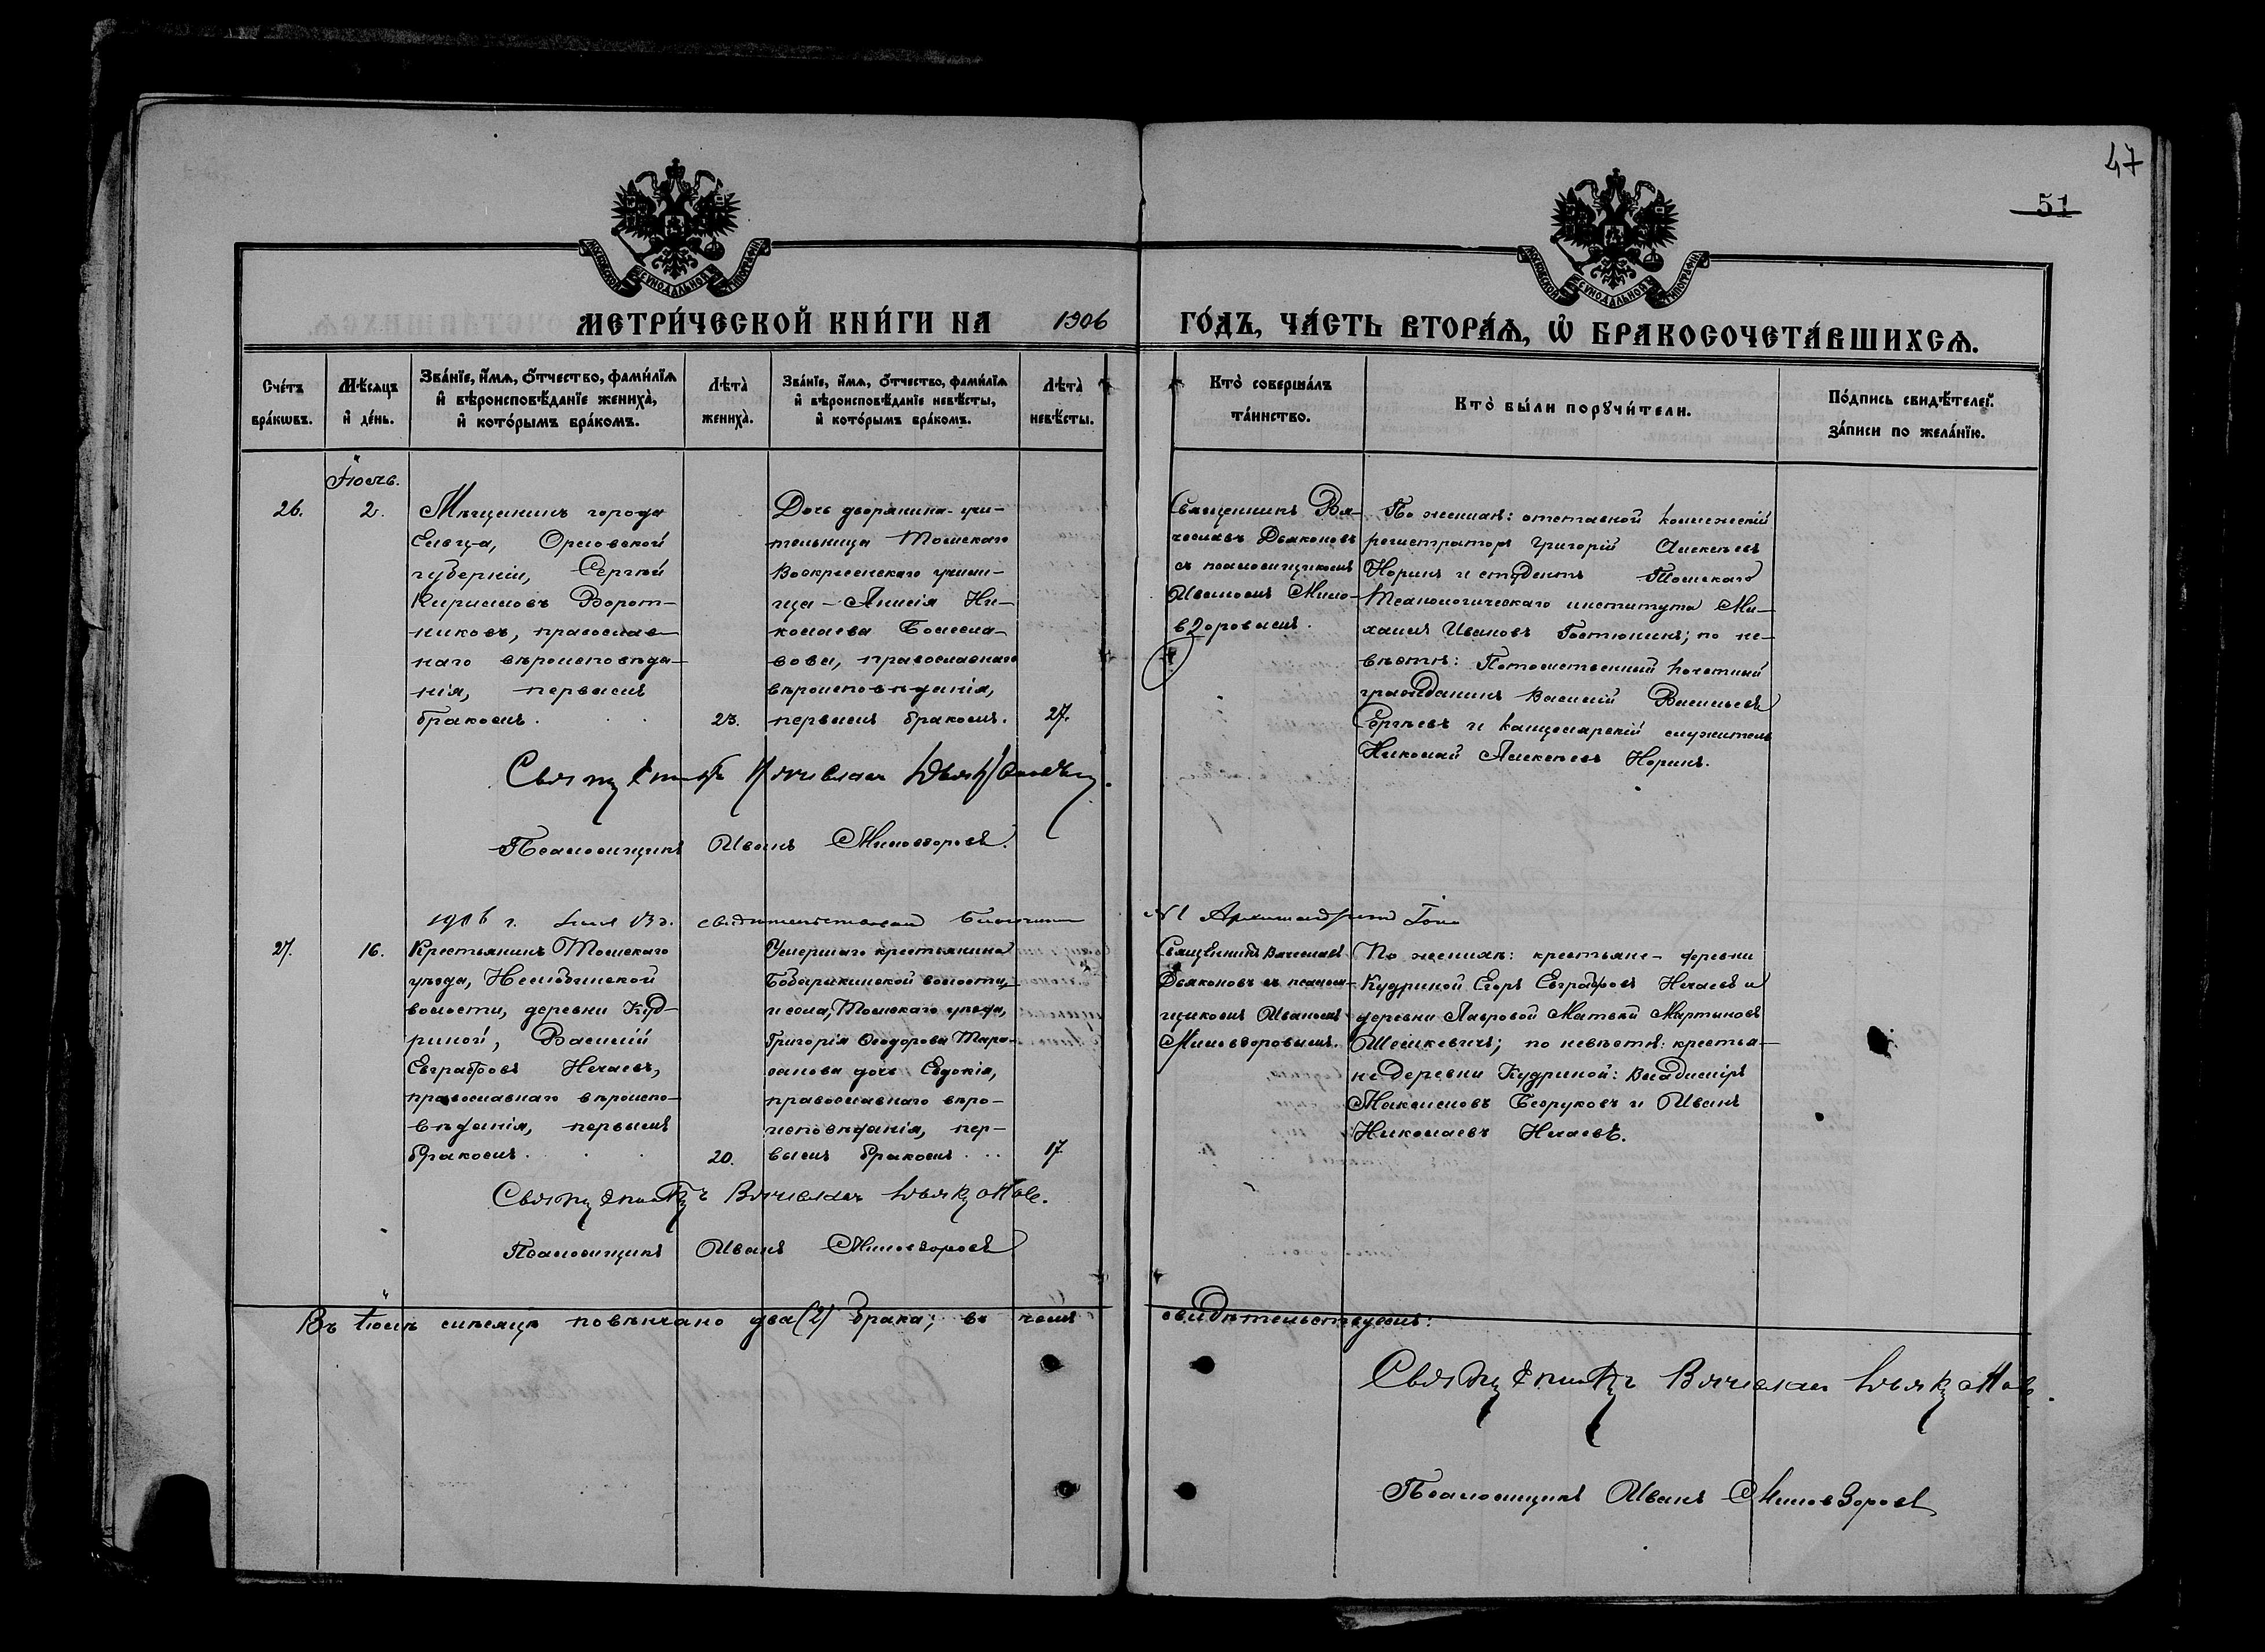 47
51
МОСКОВСКОЙ СѴНОДАЛЬНОЙ ТИПОГРАФІИ
МОСКОВСКОЙ СѴНОДАЛЬНОЙ ТИПОГРАФІИ
МЕТРИ́ЧЕСКОЙ КНИ́ГИ НА 1906 ГО́ДЪ, ЧА́СТЬ ВТОРА́Ѧ, Ѽ БРАКОСОЧЕТА́ВШИХСѦ.
Сче́тъ бра́кѡвъ.
Мѣ́сѧцъ и҆ де́нь.
Зва́нїе, и҆́мѧ, ѻ҆́тчество, фами́лїѧ и҆ вѣроисповѣ́данїе жениха̀, и҆ кото́рымъ бра́комъ.
Лѣ́та̀ жениха̀.
Зва́нїе, и҆́мѧ, ѻ҆́тчество, фами́лїѧ и҆ вѣроисповѣ́данїе невѣ́сты, и҆ кото́рымъ бра́комъ.
Лѣ́та̀ невѣ́сты.
Кто̀ соверша́лъ та́инство.
Кто̀ бы́ли порꙋчи́тели.
По́дпись свидѣ́телей за́писи по жела́нїю.
Іюль.
26.
2.
Мѣщанинъ города
Ельца, Орловской
губерніи, Сергѣй
Кирилловъ Ворот-
никовъ, православ-
наго вѣроисповѣда-
нія, первымъ
бракомъ.
23.
Дочь дворянина учи-
тельница Томскаго
Воскресенскаго учили-
ща - Анисія Ни-
колаева Болесла-
вова, православнаго
вѣроисповѣданія,
первымъ бракомъ.
27.
Священникъ Вя-
чеславъ Дьяконовъ
съ псаломщикомъ
Иваномъ Мило-
взоровымъ.
По женихѣ: отставной коллежскій
регистраторъ Григорій Алексѣевъ
Норинъ и студентъ Томскаго
Технологическаго института Ми-
хаилъ Ивановъ Гостюнинъ; по не-
вѣстѣ: Потомственный почетный
гражданинъ Василій Васильевъ
Сергѣевъ и канцелярскій служитель
Николай Алексѣевъ Норинъ.
Священникъ Вячеславъ Дьяконовъ.
Псаломщикъ Иванъ Миловзоровъ.
1906 г. свидѣтельствовалъ Благочинный
Архимандритъ Іона
27.
16.
Крестьянинъ Томскаго
уѣзда, Нелюбинской
волости, деревни Куд-
риной, Василій
Евграфовъ Нечаевъ,
православнаго вѣроиспо-
вѣданія, первымъ
бракомъ.
20.
Умершаго крестьянина
Бабарыкинской волости
и села, Томскаго уѣзда,
Григорія Ѳеодорова Тара-
канова дочь Евдокія,
православнаго вѣро-
исповѣданія, пер-
вымъ бракомъ.
17
Священникъ Вячеславъ
Дьяконовъ съ псалом-
щикомъ Иваномъ
Миловзоровымъ.
По женихѣ: крестьяне - деревни
Кудриной Егоръ Евграфовъ Нечаевъ и
деревни Лавровой Матвѣй Мартиновъ
по невѣстѣ: крестья-
не деревни Кудриной: Владиміръ
Максимовъ Безруковъ и Иванъ
Николаевъ Нечаевъ.
Священникъ Вячеславъ Дьяконовъ.
Псаломщикъ Иванъ Миловзоровъ
Въ Іюлѣ мѣсяцѣ повѣнчано два (2) брака; въ чемъ свидѣтельствуемъ:
Священникъ Вячеславъ Дьяконовъ.
Псаломщикъ Иванъ Миловзоровъ